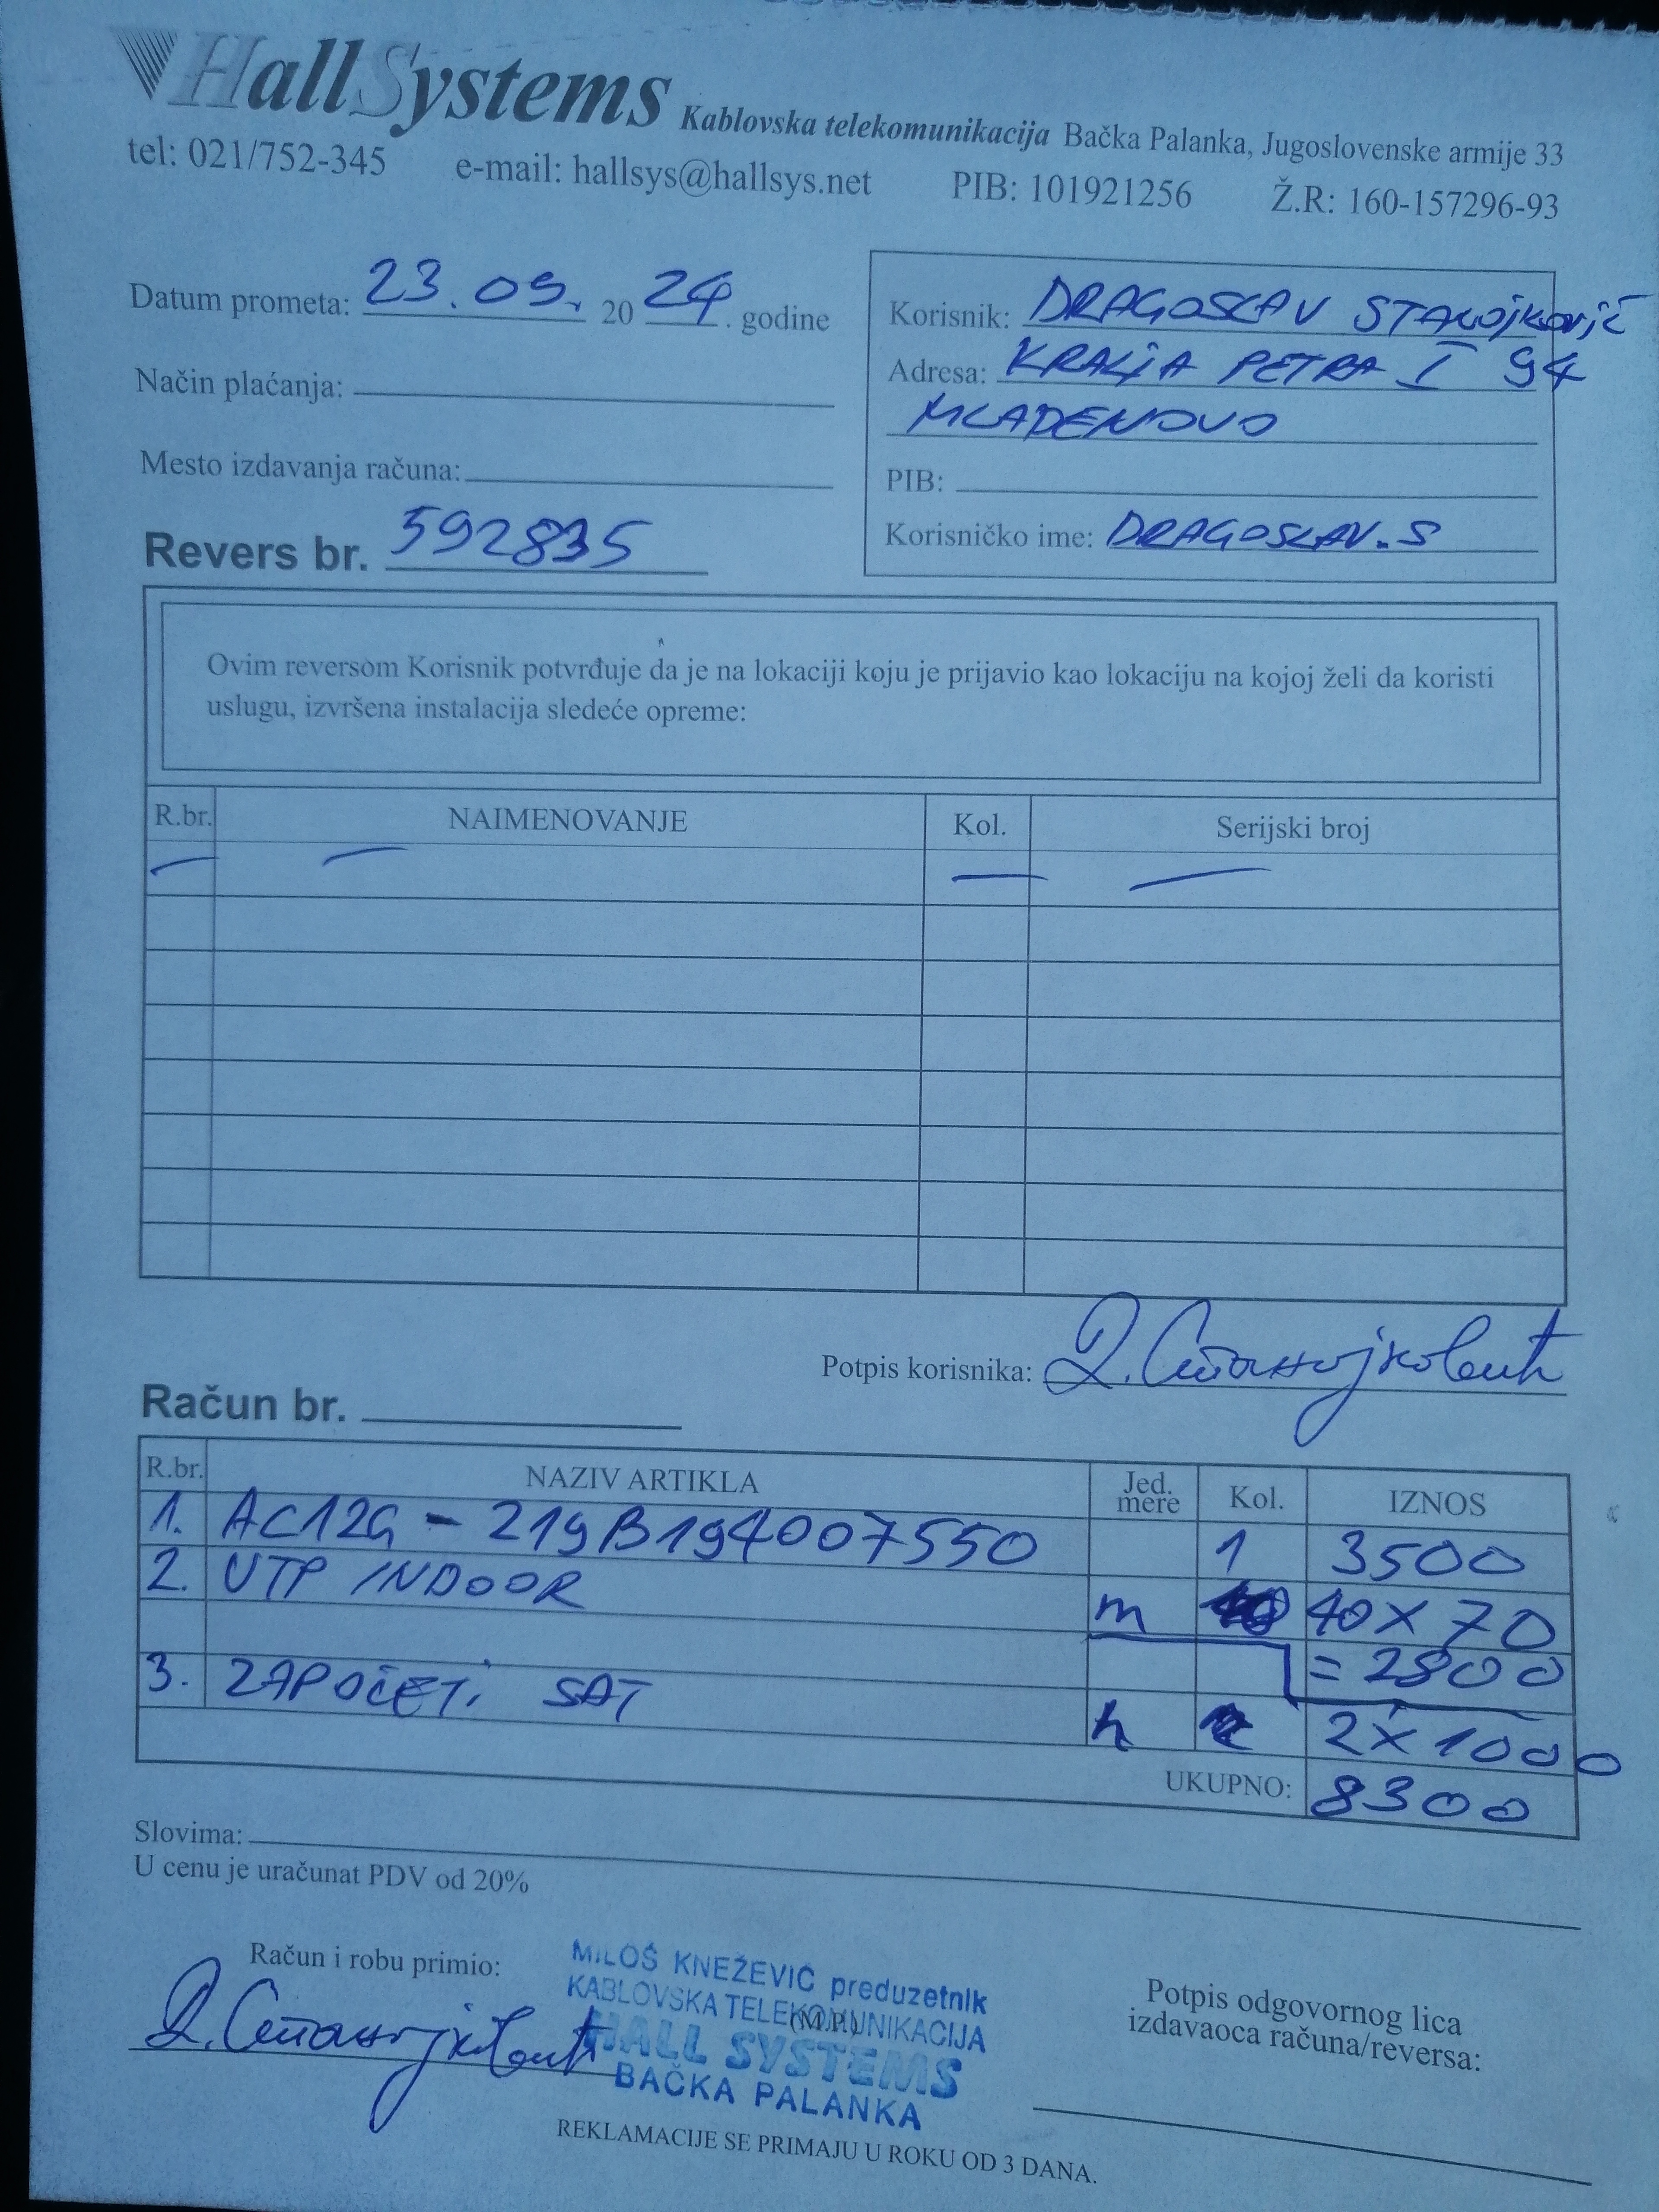 HallSystems Kablovska telekomunikacija Bačka Palanka, Jugoslovenske armije 33
tel: 021/752-345 e-mail: hallsys@hallsys.net PIB: 101921256 Ž.R: 160-157296-93
Datum prometa: 23.09. 2024. godine
Način plaćanja:
Mesto izdavanja računa:
Revers br. 592835
Korisnik: DRAGOSLAV STANOJKOVIĆ
Adresa: KRALJA PETRA I 94
MLADENOVO
PIB:
Korisničko ime: DRAGOSLAV.S
Ovim reversom Korisnik potvrđuje da je na lokaciji koju je prijavio kao lokaciju na kojoj želi da koristi
uslugu, izvršena instalacija sledeće opreme:
R.br. NAIMENOVANJE Kol. Serijski broj
— — — —
Potpis korisnika: Д. Станојковић
Račun br.
R.br. NAZIV ARTIKLA Jed. mere Kol. IZNOS
1. AC12G - 219B194007550 1 3500
2. UTP INDOOR m 40 X 70
= 2800
3. ZAPOČETI SAT h 2 X 1000
UKUPNO: 8300
Slovima:
U cenu je uračunat PDV od 20%
Račun i robu primio:
Д. Станојковић
MILOŠ KNEŽEVIĆ preduzetnik
KABLOVSKA TELEKOMUNIKACIJA
(M.P.)
HALL SYSTEMS
BAČKA PALANKA
Potpis odgovornog lica
izdavaoca računa/reversa:
REKLAMACIJE SE PRIMAJU U ROKU OD 3 DANA.